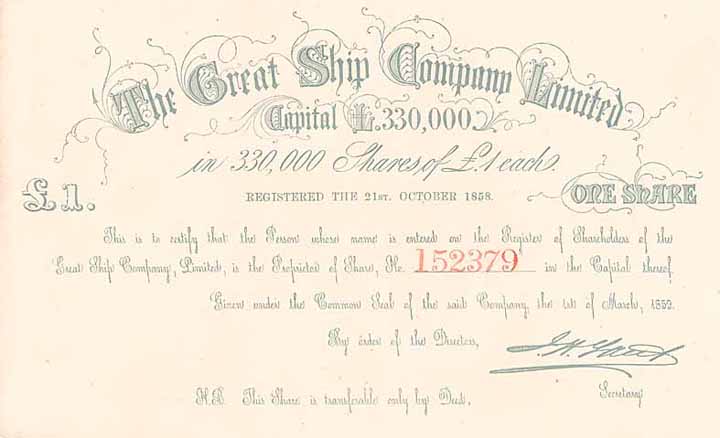 The Great Ship Company Limited
Capital £.330,000.
in 330,000 Shares, of £.1 each.
REGISTERED THE 21ST. OCTOBER 1858.
£1.
ONE SHARE
This is to certify that the Person whose name is entered on the Register of Shareholders of the
Great Ship Company, Limited, is the Proprietor of Share, No. 152379 in the Capital thereof.
Given under the Common Seal of the said Company, the 1st of March, 1859.
By order of the Directors,
Secretary
N.B. This Share is transferable only by Deed.